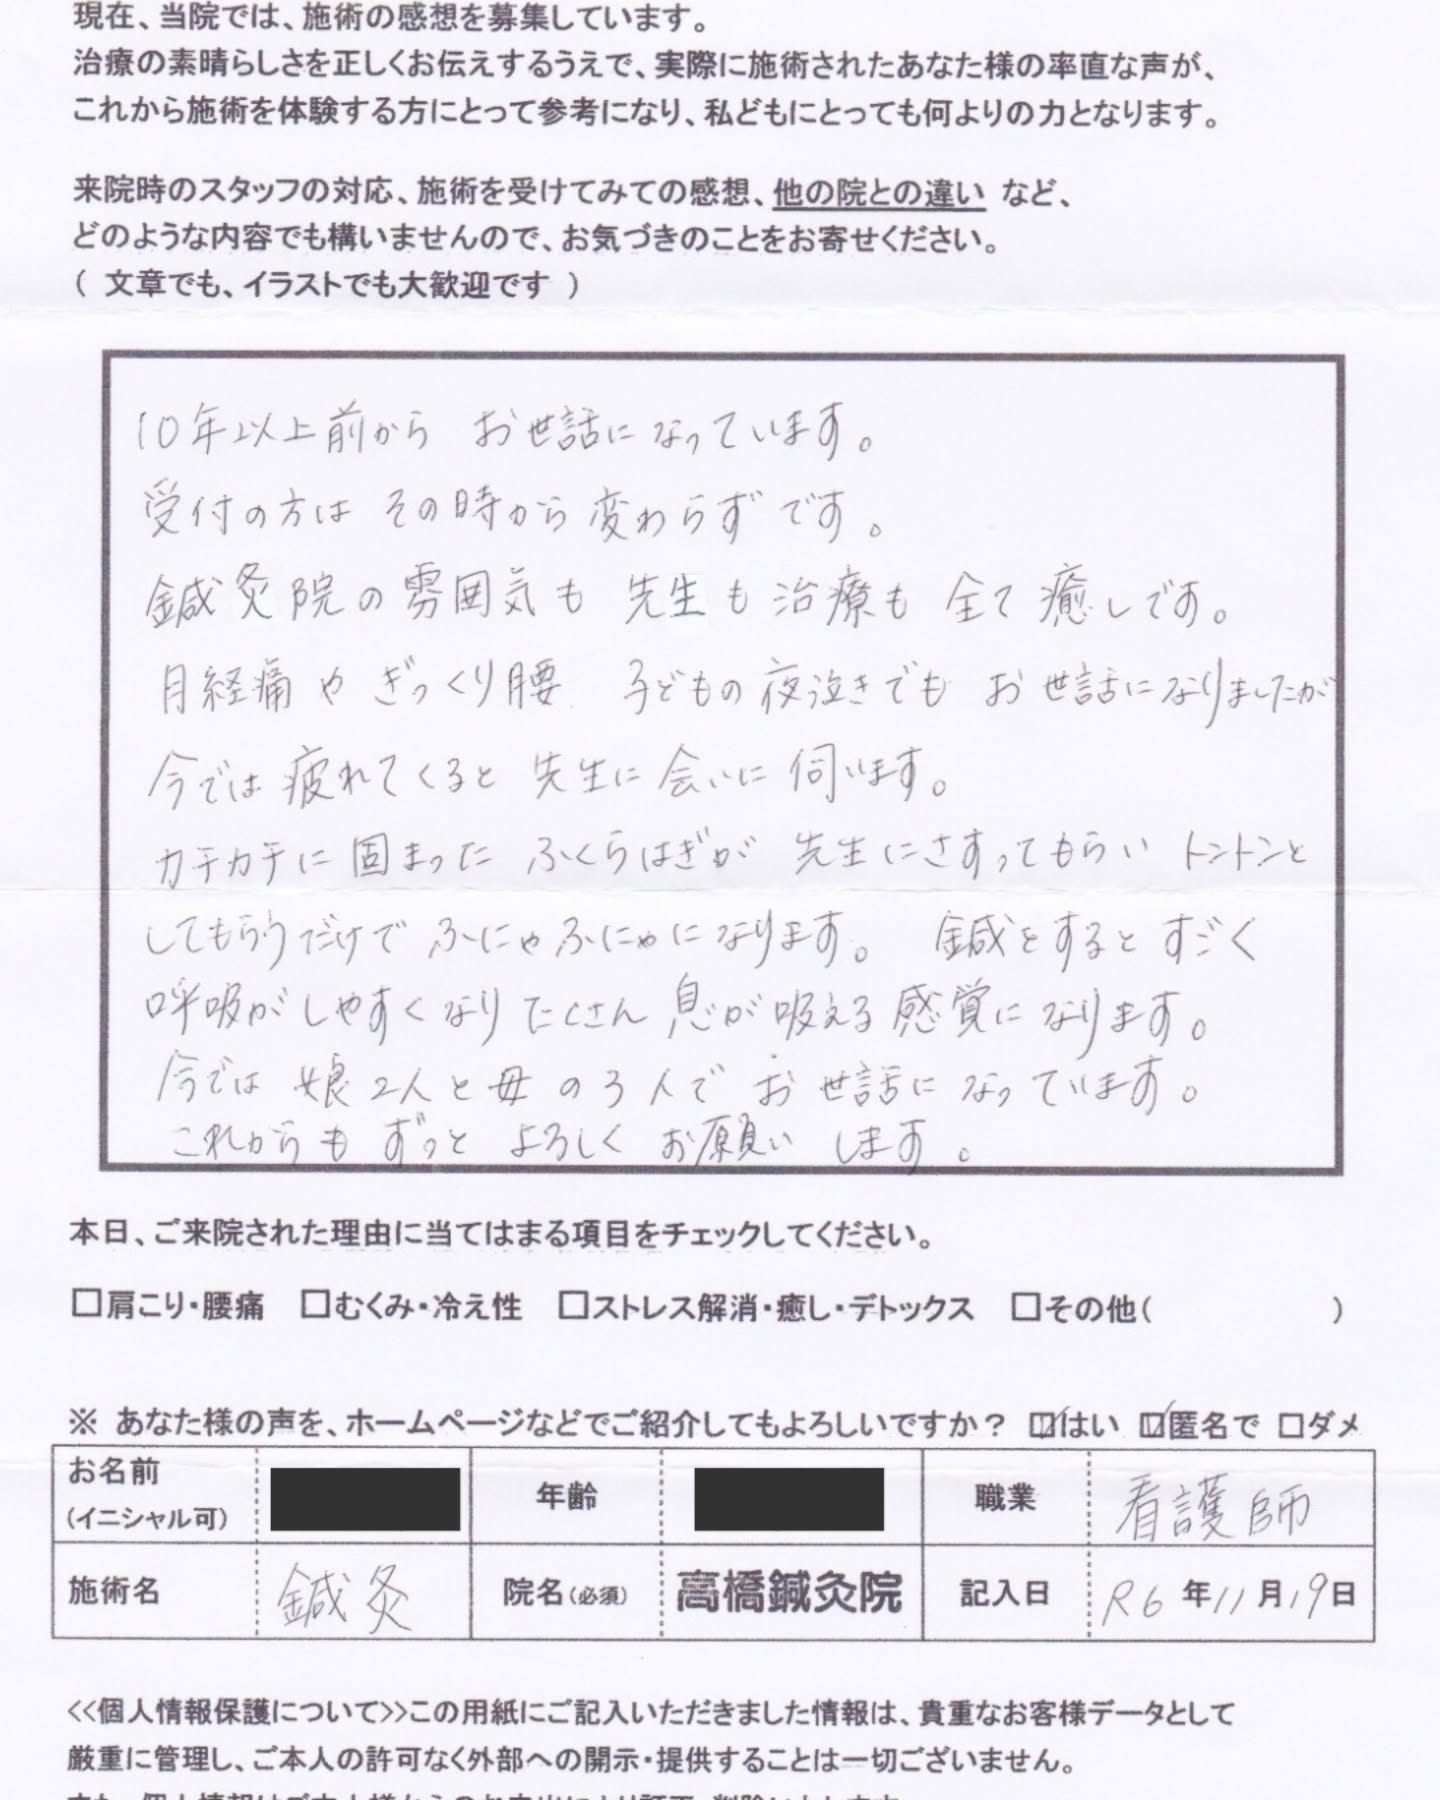 現在、当院では、施術の感想を募集しています。
治療の素晴らしさを正しくお伝えするうえで、実際に施術されたあなた様の率直な声が、
これから施術を体験する方にとって参考になり、私どもにとっても何よりの力となります。
来院時のスタッフの対応、施術を受けてみての感想、他の院との違い など、
どのような内容でも構いませんので、お気づきのことをお寄せください。
( 文章でも、イラストでも大歓迎です )
10年以上前から お世話になっています。
受付の方は その時から変わらずです。
鍼灸院の雰囲気も 先生も治療も 全て癒しです。
月経痛や ぎっくり腰 子どもの夜泣きでも お世話になりましたが
今では疲れてくると 先生に会いに伺います。
カチカチに固まった ふくらはぎが 先生にさすってもらい トントンと
してもらうだけで ふにゃふにゃになります。 鍼をすると すごく
呼吸がしやすくなり たくさん息が吸える感覚になります。
今では 娘2人と母の3人で お世話になっています。
これからも ずっと よろしく お願い します。
本日、ご来院された理由に当てはまる項目をチェックしてください。
□肩こり・腰痛 □むくみ・冷え性 □ストレス解消・癒し・デトックス □その他( )
※ あなた様の声を、ホームページなどでご紹介してもよろしいですか? ☑はい ☑匿名で □ダメ
お名前 (イニシャル可) 年齢 職業 看護師
施術名 鍼灸 院名(必須) 高橋鍼灸院 記入日 R6年11月19日
<<個人情報保護について>>この用紙にご記入いただきました情報は、貴重なお客様データとして
厳重に管理し、ご本人の許可なく外部への開示・提供することは一切ございません。